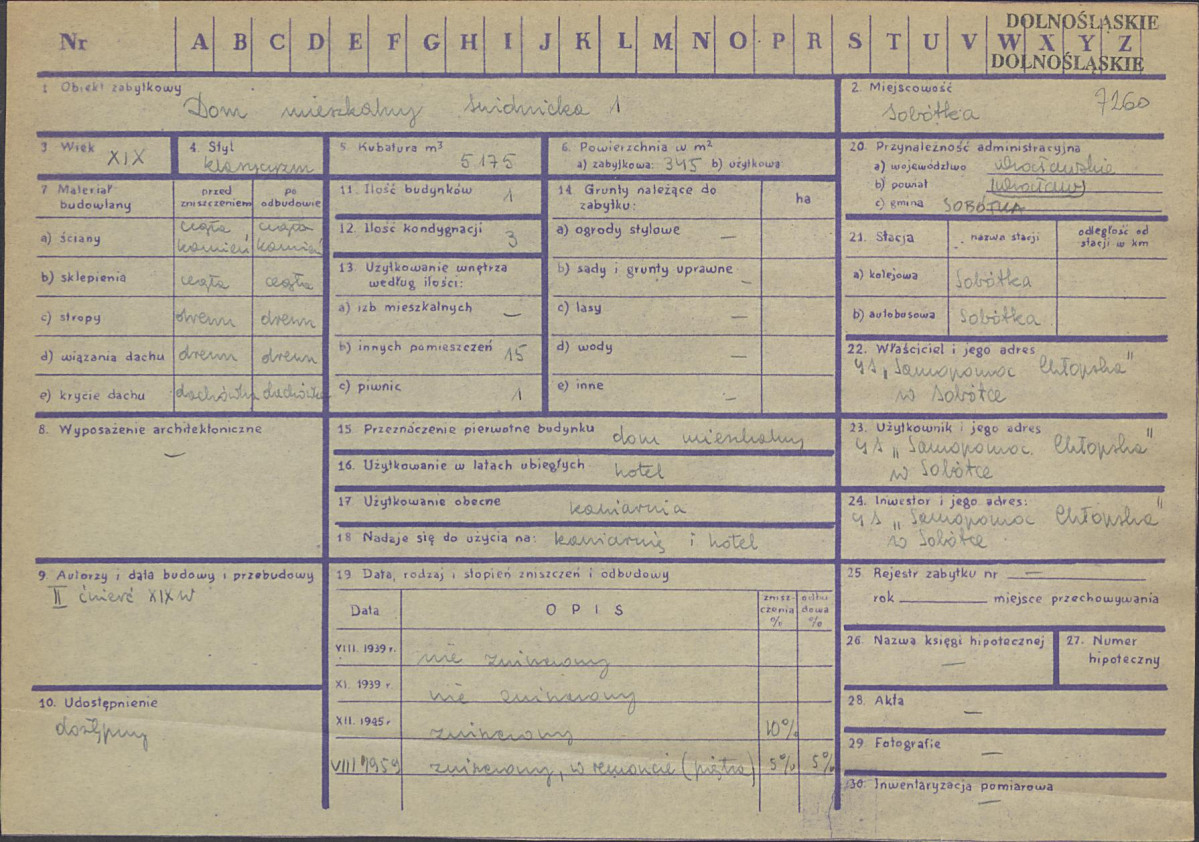 DOLNOŚLĄSKIE
Nr A B C D E F G H I J K L M N O P R S T U V W X Y Z
DOLNOŚLĄSKIE
1 Obiekt zabytkowy
Dom mieszkalny Świdnicka 1
2. Miejscowość
Sobótka 7260
3 Wiek XIX
4. Styl
klasycyzm
5. Kubatura m³
5.175
6. Powierzchnia w m²
a) zabytkowa: 345 b) użytkowa
20. Przynależność administracyjna
a) województwo wrocławskie
b) powiat (Wrocław)
c) gmina SOBÓTKA
7 Materiał budowlany
przed zniszczeniem
po odbudowie
a) ściany cegła kamień cegła kamień
b) sklepienia cegła cegła
c) stropy drewn drewn
d) wiązania dachu drewn drewn
e) krycie dachu dachówka dachówka
11. Ilość budynków 1
12. Ilość kondygnacji 3
13. Użytkowanie wnętrza
według ilości:
a) izb mieszkalnych —
b) innych pomieszczeń 15
c) piwnic 1
14. Grunty należące do
zabytku: ha
a) ogrody stylowe —
b) sady i grunty uprawne —
c) lasy —
d) wody —
e) inne —
21. Stacja nazwa stacji odległość od stacji w km
a) kolejowa Sobótka
b) autobusowa Sobótka
22. Właściciel i jego adres
GS „Samopomoc Chłopska"
w Sobótce
8. Wyposażenie architektoniczne
—
15 Przeznaczenie pierwotne budynku dom mieszkalny
16. Użytkowanie w latach ubiegłych hotel
17 Użytkowanie obecne kawiarnia
18 Nadaje się do użycia na: kawiarnię i hotel
23. Użytkownik i jego adres
GS „Samopomoc Chłopska"
w Sobótce
24. Inwestor i jego adres:
GS „Samopomoc Chłopska"
w Sobótce
9. Autorzy i data budowy i przebudowy
II ćwierć XIX w
10. Udostępnienie
dostępny
19. Data, rodzaj i stopień zniszczeń i odbudowy
Data OPIS zniszczenia % odbudowa %
VIII. 1939 r. nie zniszczony
XI. 1939 r nie zniszczony
XII. 1945r zniszczony 10%
VIII 1959 zniszczony, w remoncie (piętro) 5% 5%
25. Rejestr zabytku nr —
rok miejsce przechowywania
26. Nazwa księgi hipotecznej
—
27. Numer
hipoteczny
28. Akta
—
29. Fotografie
—
30. Inwentaryzacja pomiarowa
—